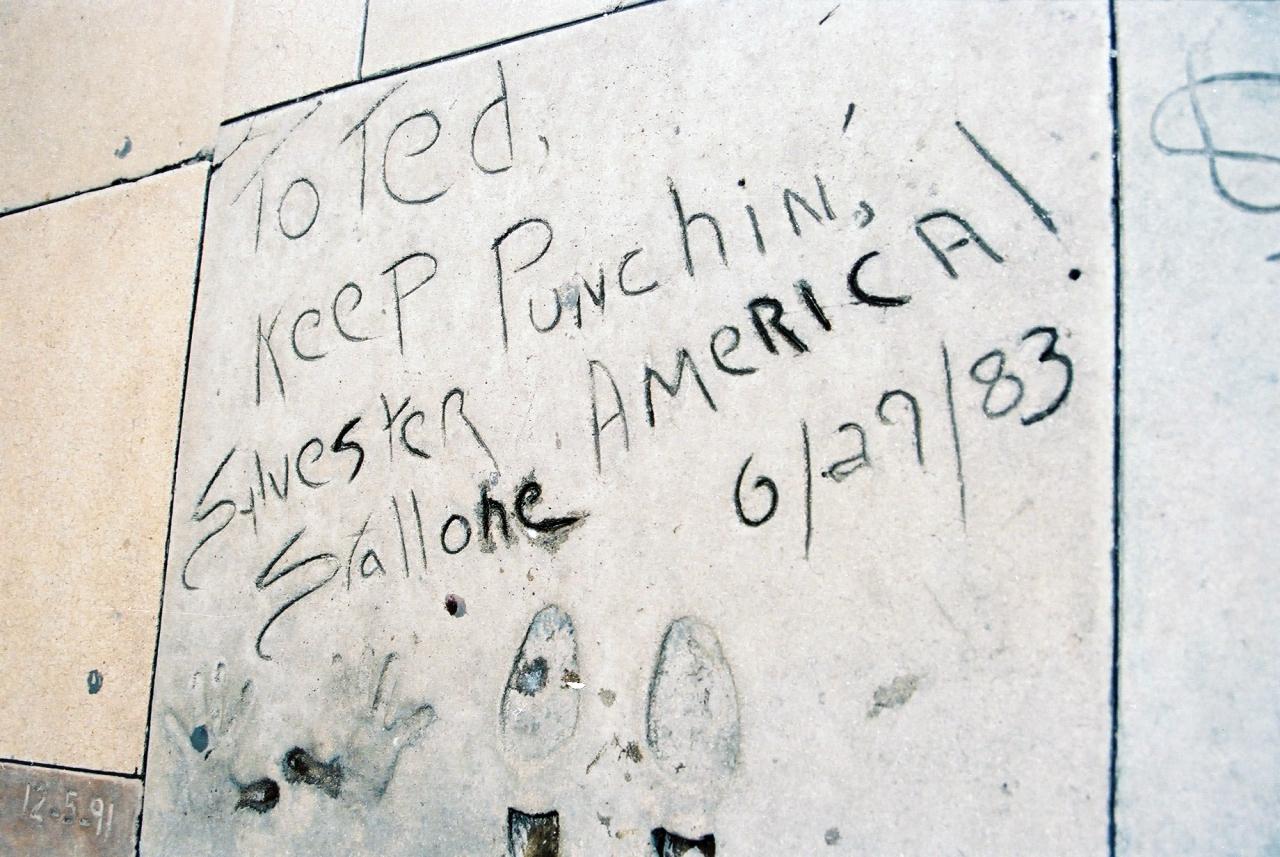 To Ted,
KeeP Punchin',
AMeRICA!
Sylvester
Stallone
6/29/83
12-5-91